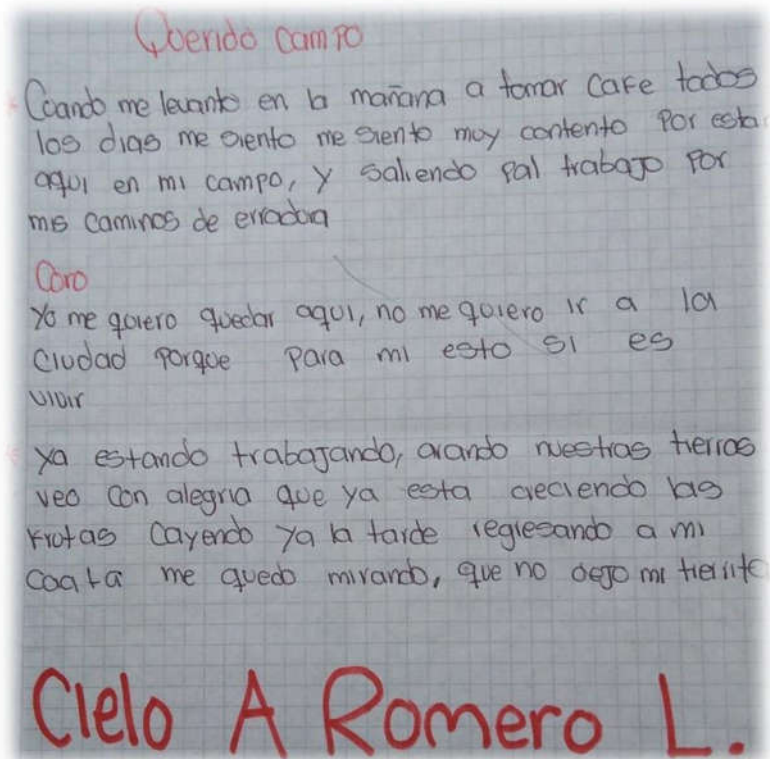 Querido campo
Cuando me levanto en la mañana a tomar cafe todos
los dias me siento me siento muy contento Por esta
aqui en mi campo, y saliendo pal trabajo por
mis caminos de erradura
Coro
Yo me quiero quedar aqui, no me quiero ir a la
Ciudad Porque Para mi esto si es
vivir
Ya estando trabajando, arando nuestras tierras
veo con alegria que ya esta creciendo las
Frutas Cayendo ya la tarde regresando a mi
me quedo mirando, que no dejo mi tierrita
Cielo A Romero L.